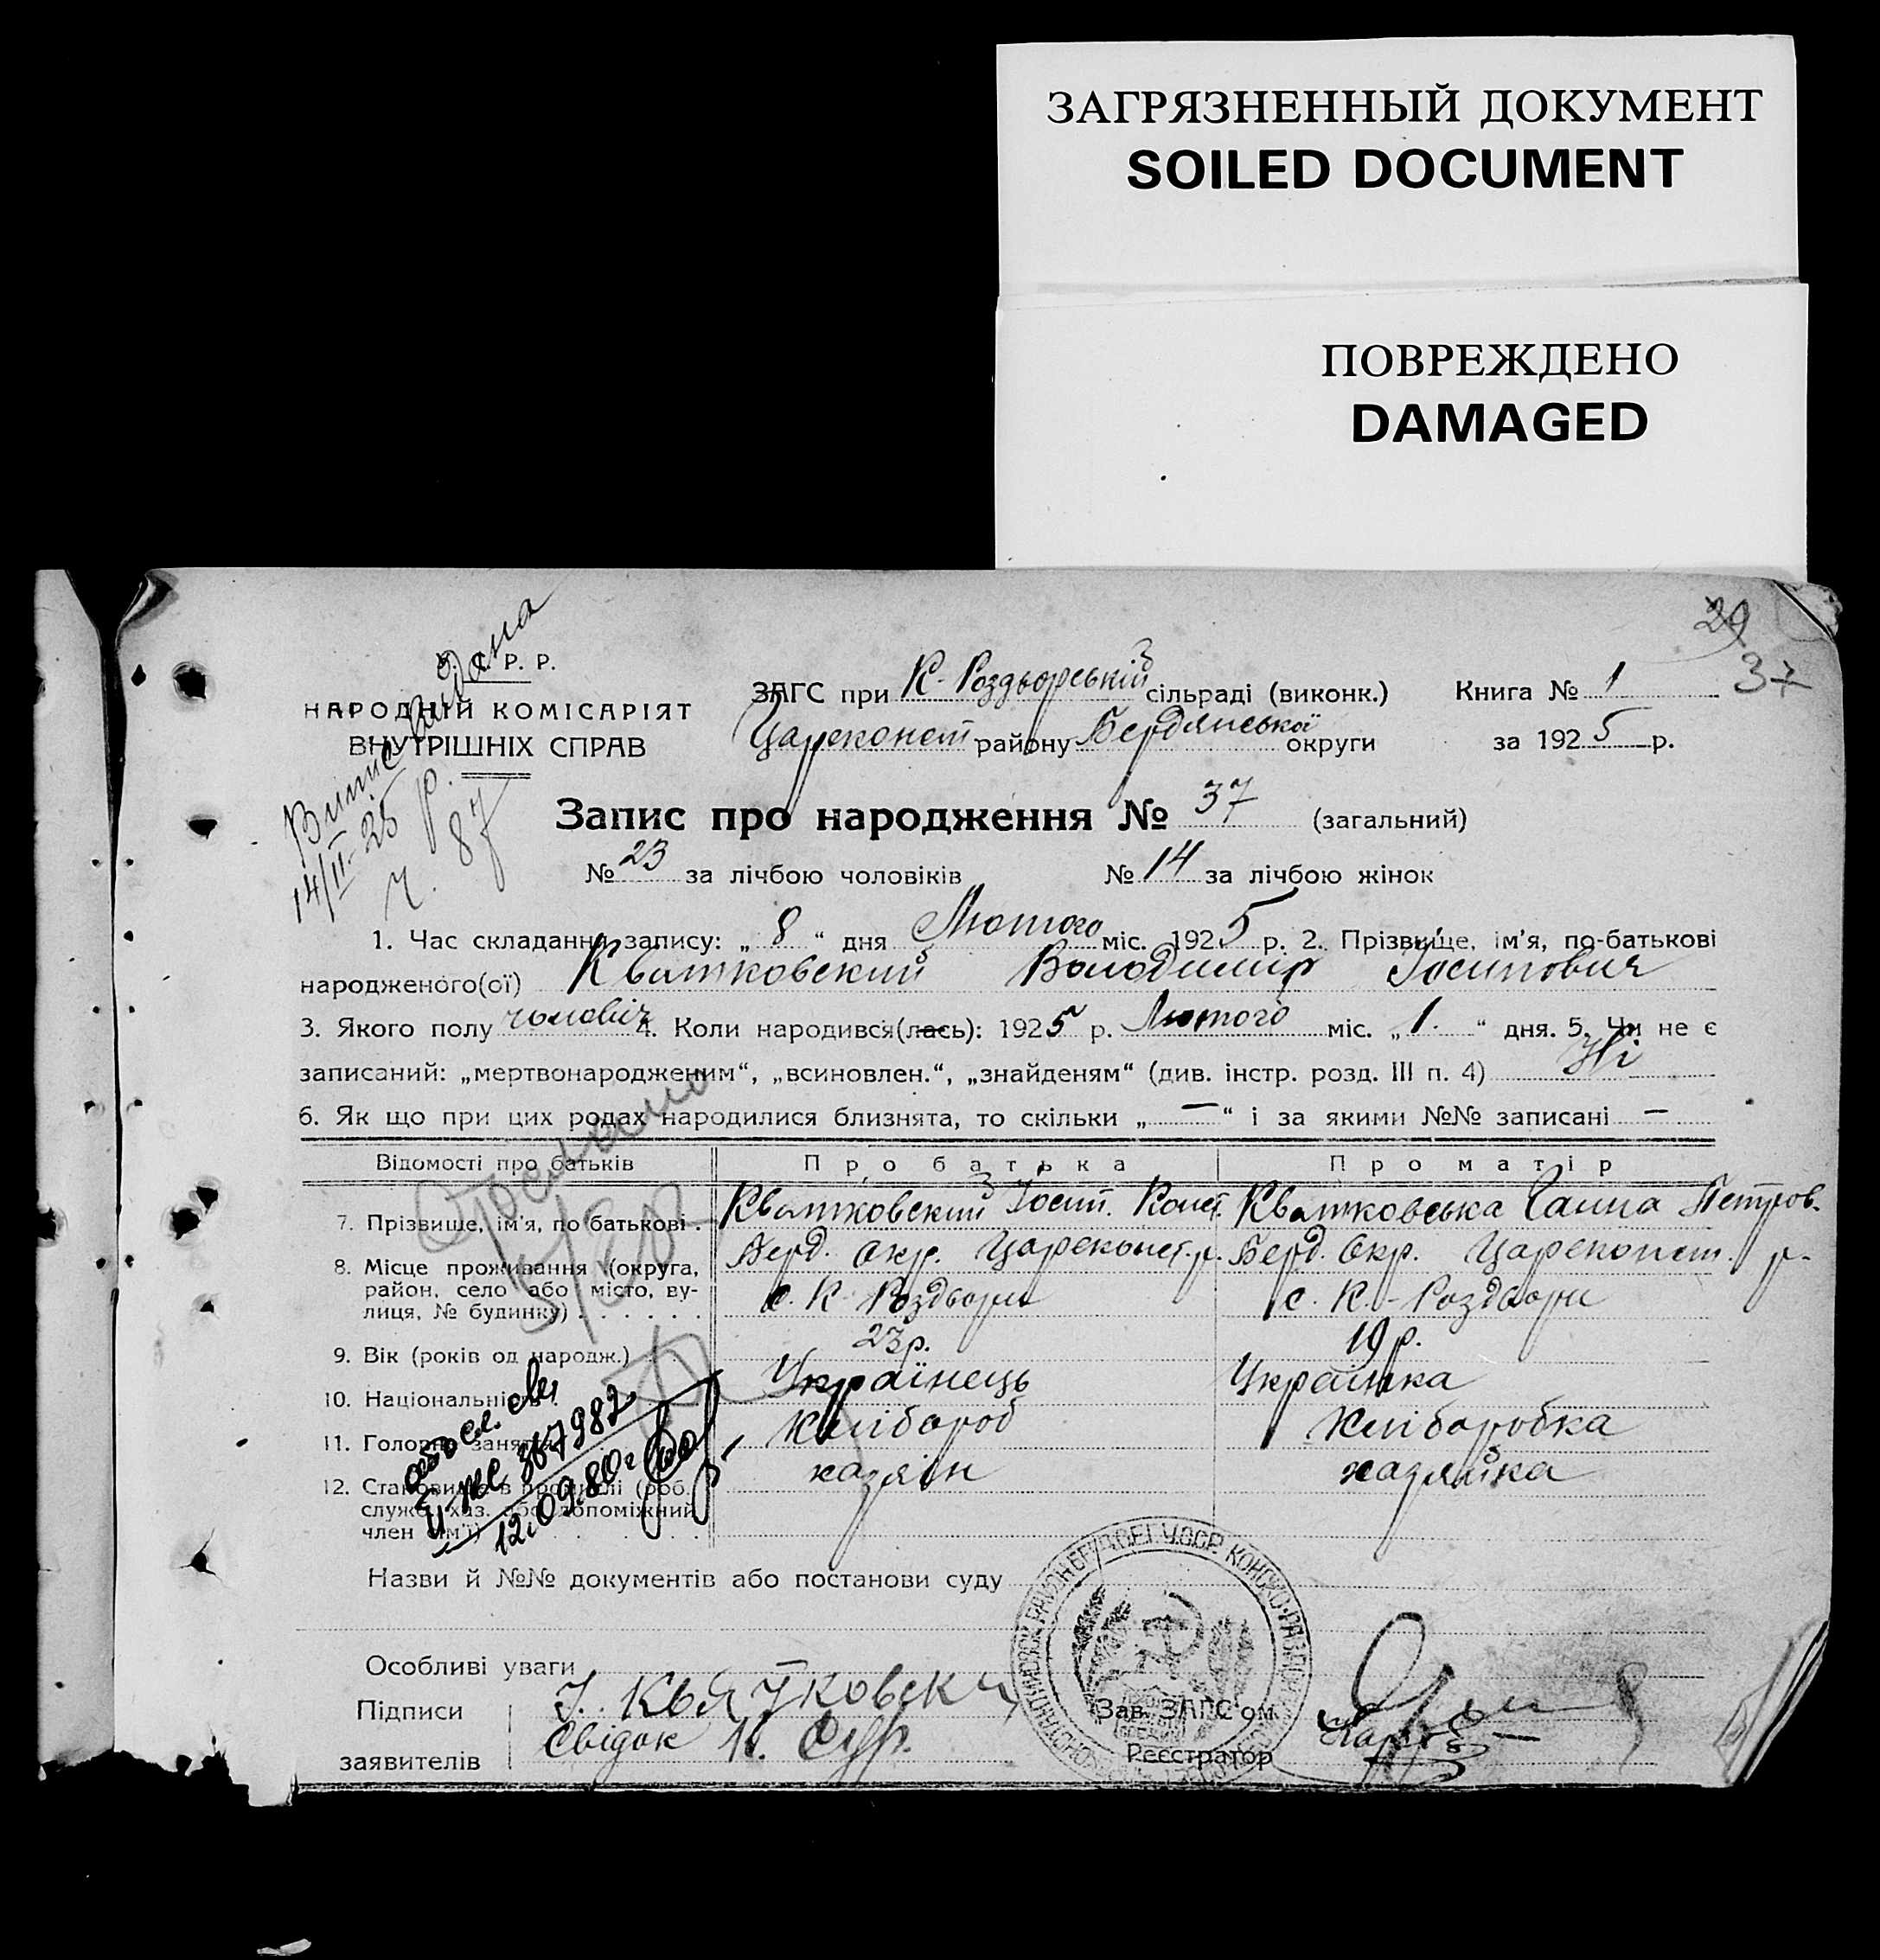 ЗАГРЯЗНЕННЫЙ ДОКУМЕНТ
SOILED DOCUMENT
ПОВРЕЖДЕНО
DAMAGED
29
37
У. Р. Р.
НАРОДНІЙ КОМІСАРІЯТ
ВНУТРІШНІХ СПРАВ
Випис видана
14/II-25 р.
ч. 87
ЗАГС при К-Роздорській сільраді (виконк.) Книга № 1
Цареконст району Бердянської округи за 1925 р.
Запис про народження № 37 (загальний)
№ 23 за лічбою чоловіків № 14 за лічбою жінок
1. Час складання запису: „ 8 “ дня Лютого міс. 1925 р. 2. Прізвище, ім’я, по-батькові
народженого(ої) Квятковский Володимир Йосипович
3. Якого полу чоловіч 4. Коли народився(лась): 1925 р. Лютого міс. „ 1. “ дня. 5. Чи не є
записаний: „мертвонародженим“, „всиновлен.“, „знайденям“ (див. інстр. розд. III п. 4) Ні
6. Як що при цих родах народилися близнята, то скільки „ — “ і за якими №№ записані —
Відомості про батьків Про батька Про матір
7. Прізвище, ім’я, по батькові . Квятковский Йосип. Конст. Квятковська Ганна Петров.
8. Місце проживання (округа, район, село або місто, вулиця, № будинку) Берд. Окр. Цареконст. р. Берд. Окр. Цареконст. р.
с. К-Роздори с. К.-Роздори
9. Вік (років од народж.) 23 р. 19 р.
10. Національність Українець Українка
11. Головне заняття Хлібороб Хліборобка
12. Становище в промислі (роб. служ. хаз. або допоміжний член сім’ї) хазяїн хазяйка
367982
12.09.80 г
Назви й №№ документів або постанови суду
Особливі уваги
Підписи І. Квятковски Зав. ЗАГС’ом
заявителів Свідок Реєстратор